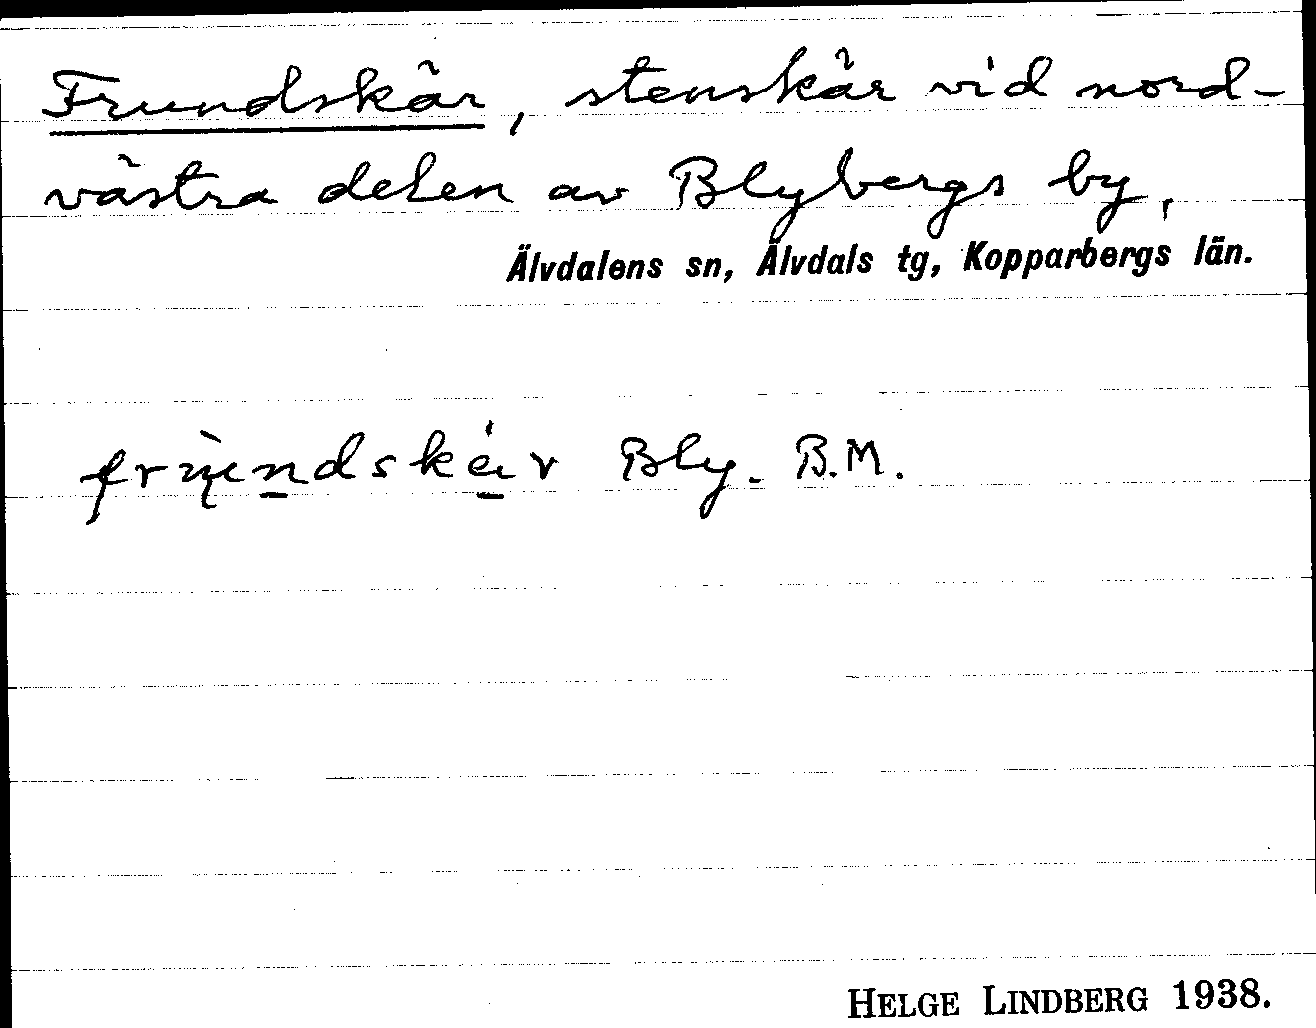 Frundskär, stenskär vid nord-
västra delen av Blybergs by,
Älvdalens sn, Älvdals tg, Kopparbergs län.
Bly. B.M.
HELGE LINDBERG 1938.